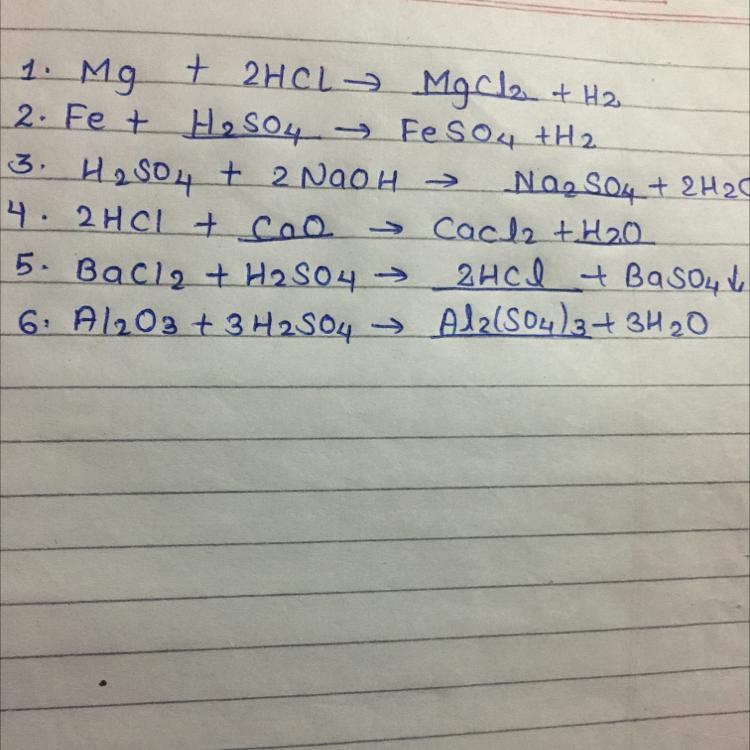 1. Mg + 2HCl → MgCl2 + H2
2. Fe + H2SO4 → FeSO4 + H2
3. H2SO4 + 2NaOH → Na2SO4 + 2H2O
4. 2HCl + CaO → CaCl2 + H2O
5. BaCl2 + H2SO4 → 2HCl + BaSO4↓
6. Al2O3 + 3H2SO4 → Al2(SO4)3 + 3H2O